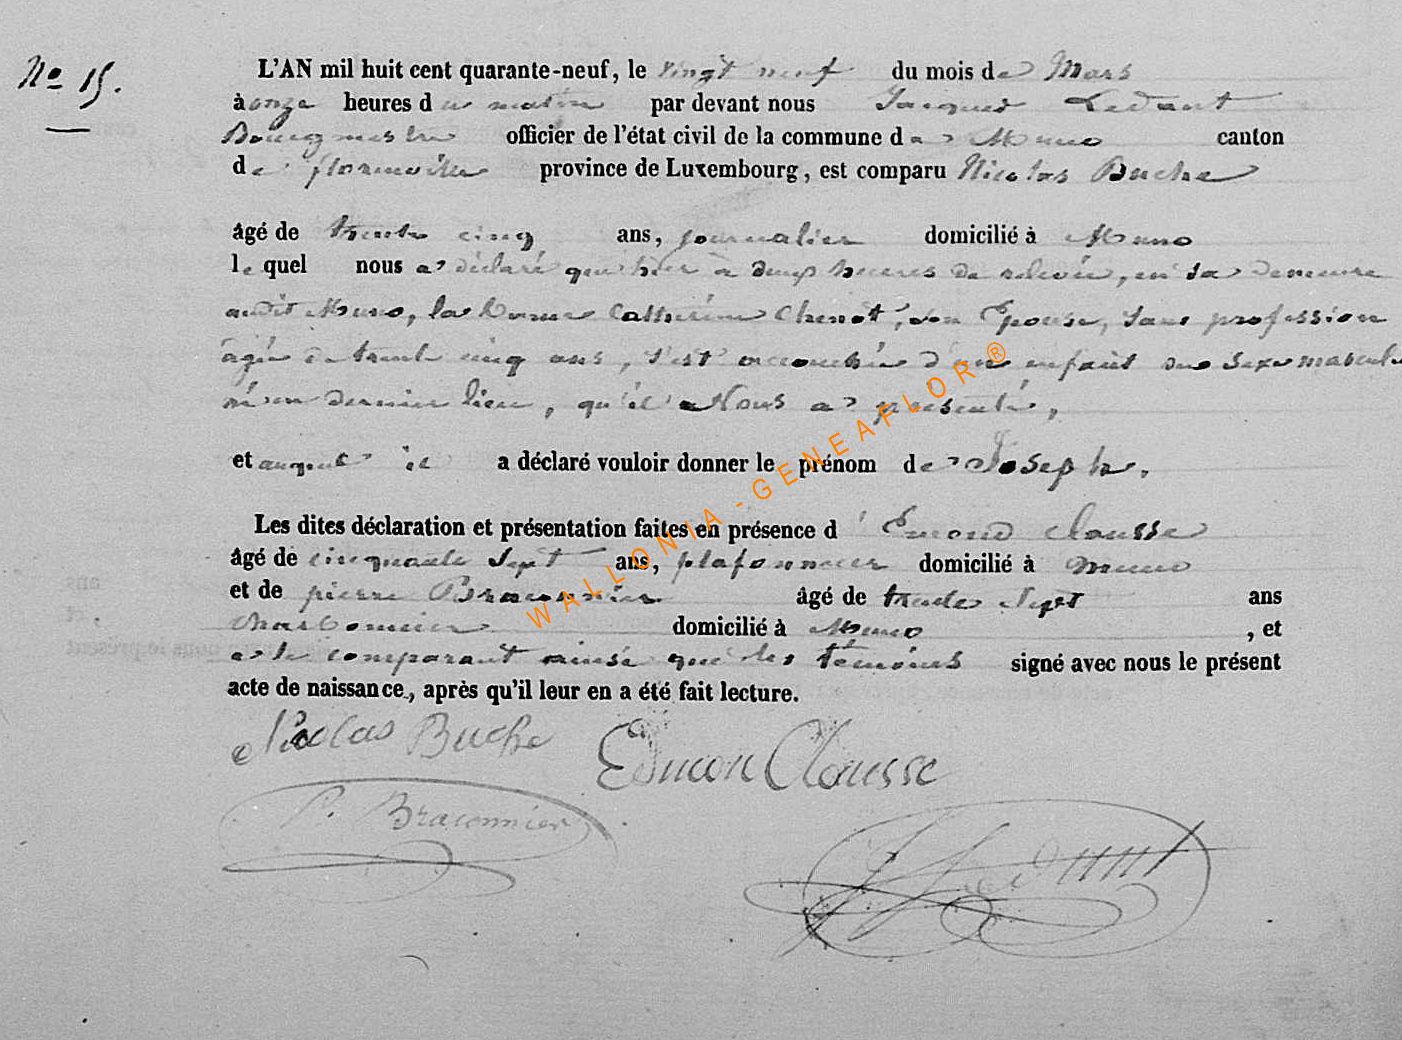 No 15.
L'AN mil huit cent quarante-neuf, le vingt neuf du mois de Mars
à onze heures du matin par devant nous Jacques Ledant
Bourgmestre officier de l'état civil de la commune de Muno canton
de florenville province de Luxembourg, est comparu Nicolas Buche
âgé de trente cinq ans, journalier domicilié à Muno
le quel nous a déclaré que hier à deux heures de relevée, en sa demeure
audit Muno, la Dame Catherine Chenot, son Epouse, sans profession
agée de trente cinq ans, s'est accouchée d'un enfant du sexe masculin
né en dernier lieu, qu'il Nous a presenté,
et auquel il a déclaré vouloir donner le prénom de Joseph.
Les dites déclaration et présentation faites en présence d'Emond Clausse
âgé de cinquante sept ans, plafonneur domicilié à muno
et de pierre Braconnier âgé de trente Sept ans
charbonnier domicilié à Muno, et
a le comparant ainsi que les témoins signé avec nous le présent
acte de naissance, après qu'il leur en a été fait lecture.
Nicolas Buche Edmon Clausse
P. Braconnier
J Ledant
WALLONIA - GENEAFLOR ®